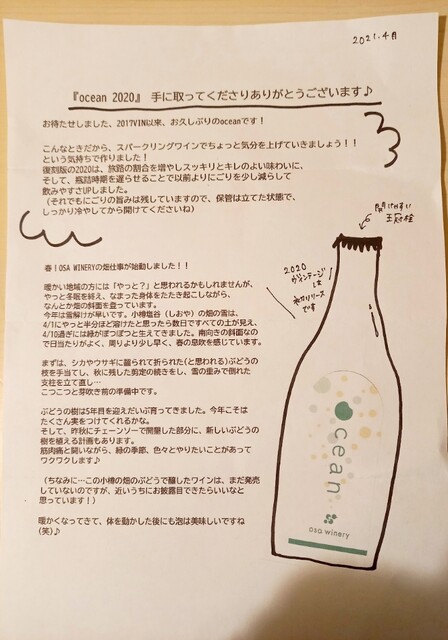 2021.4月
『ocean 2020』 手に取ってくださりありがとうございます♪
お待たせしました、2017VIN以来、お久しぶりのoceanです！
こんなときだから、スパークリングワインでちょっと気分を上げていきましょう！！
という気持ちで作りました！
復刻版の2020は、旅路の割合を増やしスッキリとキレのよい味わいに、
そして、瓶詰時期を遅らせることで以前よりにごりを少し減らして
飲みやすさUPしました。
（それでもにごりの旨みは残していますので、保管は立てた状態で、
しっかり冷やしてから開けてくださいね）
開けやすい
王冠栓
2020
ヴィンテージは
初リリース
です
春！OSA WINERYの畑仕事が始動しました！！
暖かい地域の方には「やっと？」と思われるかもしれませんが、
やっと冬眠を終え、なまった身体をたたき起こしながら、
なんとか畑の斜面を登っています。
今年は雪解けが早いです。小樽塩谷（しおや）の畑の雪は、
4/1にやっと半分ほど溶けたと思ったら数日ですべての土が見え、
4/10過ぎには緑がぽつぽつと生えてきました。南向きの斜面なの
で日当たりがよく、周りより少し早く、春の息吹を感じています。
まずは、シカやウサギに齧られて折られた(と思われる)ぶどうの
枝を手当てし、秋に残した剪定の続きをし、雪の重みで倒れた
支柱を立て直し…
こつこつと芽吹き前の準備中です。
ぶどうの樹は5年目を迎えだいぶ育ってきました。今年こそは
たくさん実をつけてくれるかな。
そして、昨秋にチェーンソーで開墾した部分に、新しいぶどうの
樹を植える計画もあります。
筋肉痛と闘いながら、緑の季節、色々とやりたいことがあって
ワクワクします♪
（ちなみに…この小樽の畑のぶどうで醸したワインは、まだ発売
していないのですが、近いうちにお披露目できたらいいなと
思っています！）
暖かくなってきて、体を動かした後にも泡は美味しいですね
(笑)♪
ocean
osa winery